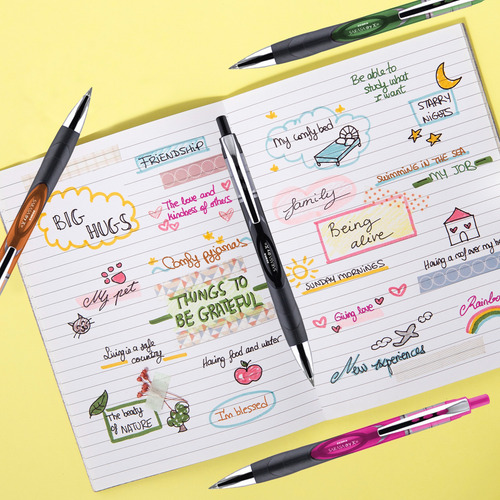 FRIENDSHIP
BIG
HUGS
The love and
kindness of others
Comfy pyjamas
My pet
THINGS TO
BE GRATEFUL
Living is a safe
country
Having food and water
The beauty
of NATURE
I'm blessed
Be able to
study what
I want
STARRY
NIGHTS
My comfy bed
SWIMMING IN THE SEA
MY JOB
family
Being
alive
Having a roof over my
SUNDAY MORNINGS
Giving love
Rainbo
New experiences